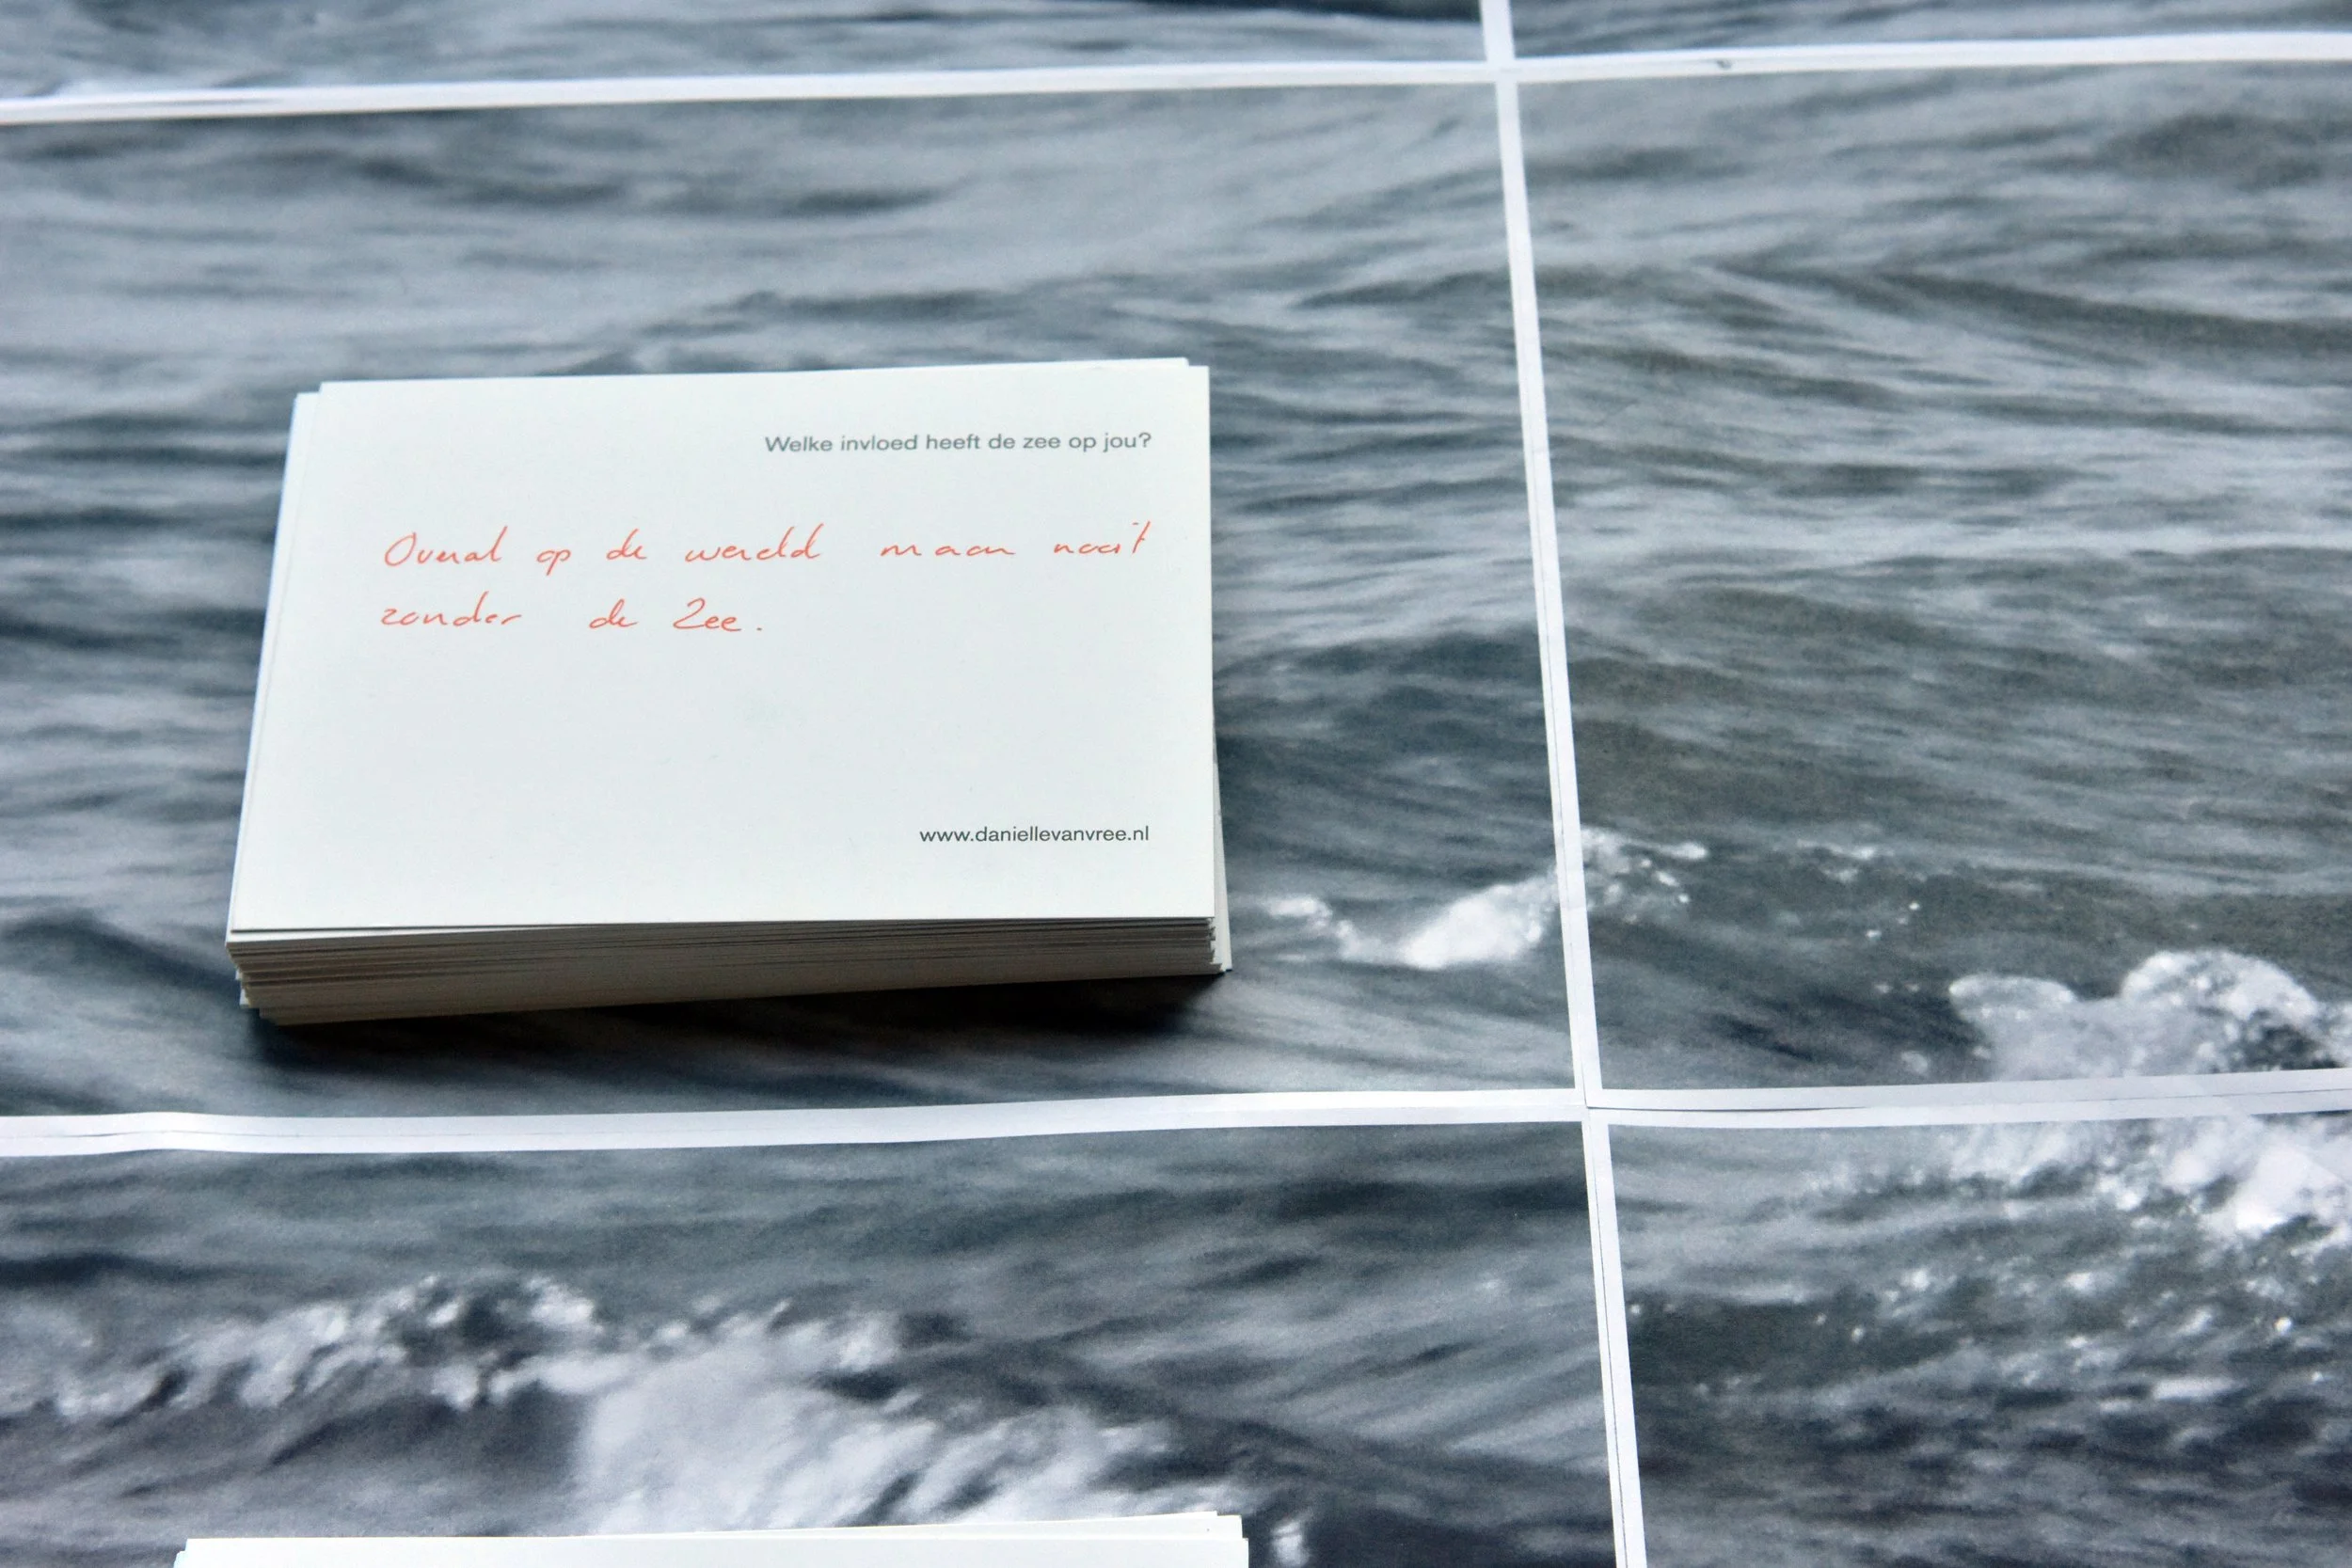 Welke invloed heeft de zee op jou?
Overal op de wereld maar nooit
zonder de Zee.
www.daniellevanvree.nl